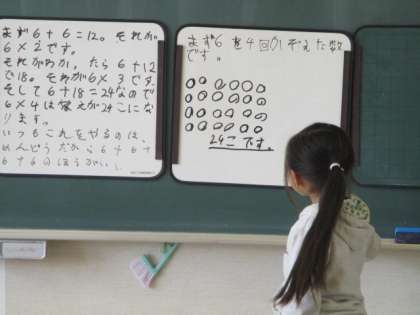 まず6+6=12。それが
6×2です。
それがわかったら6+12
で18。それが6×3です
そして6+18=24なので
6×4は答えが24こにな
ります。
いつもこれをやるのは、
めんどうだから6+6+
6+6のほうがいい。
まず6を4回かぞえた数
です。
24こです。